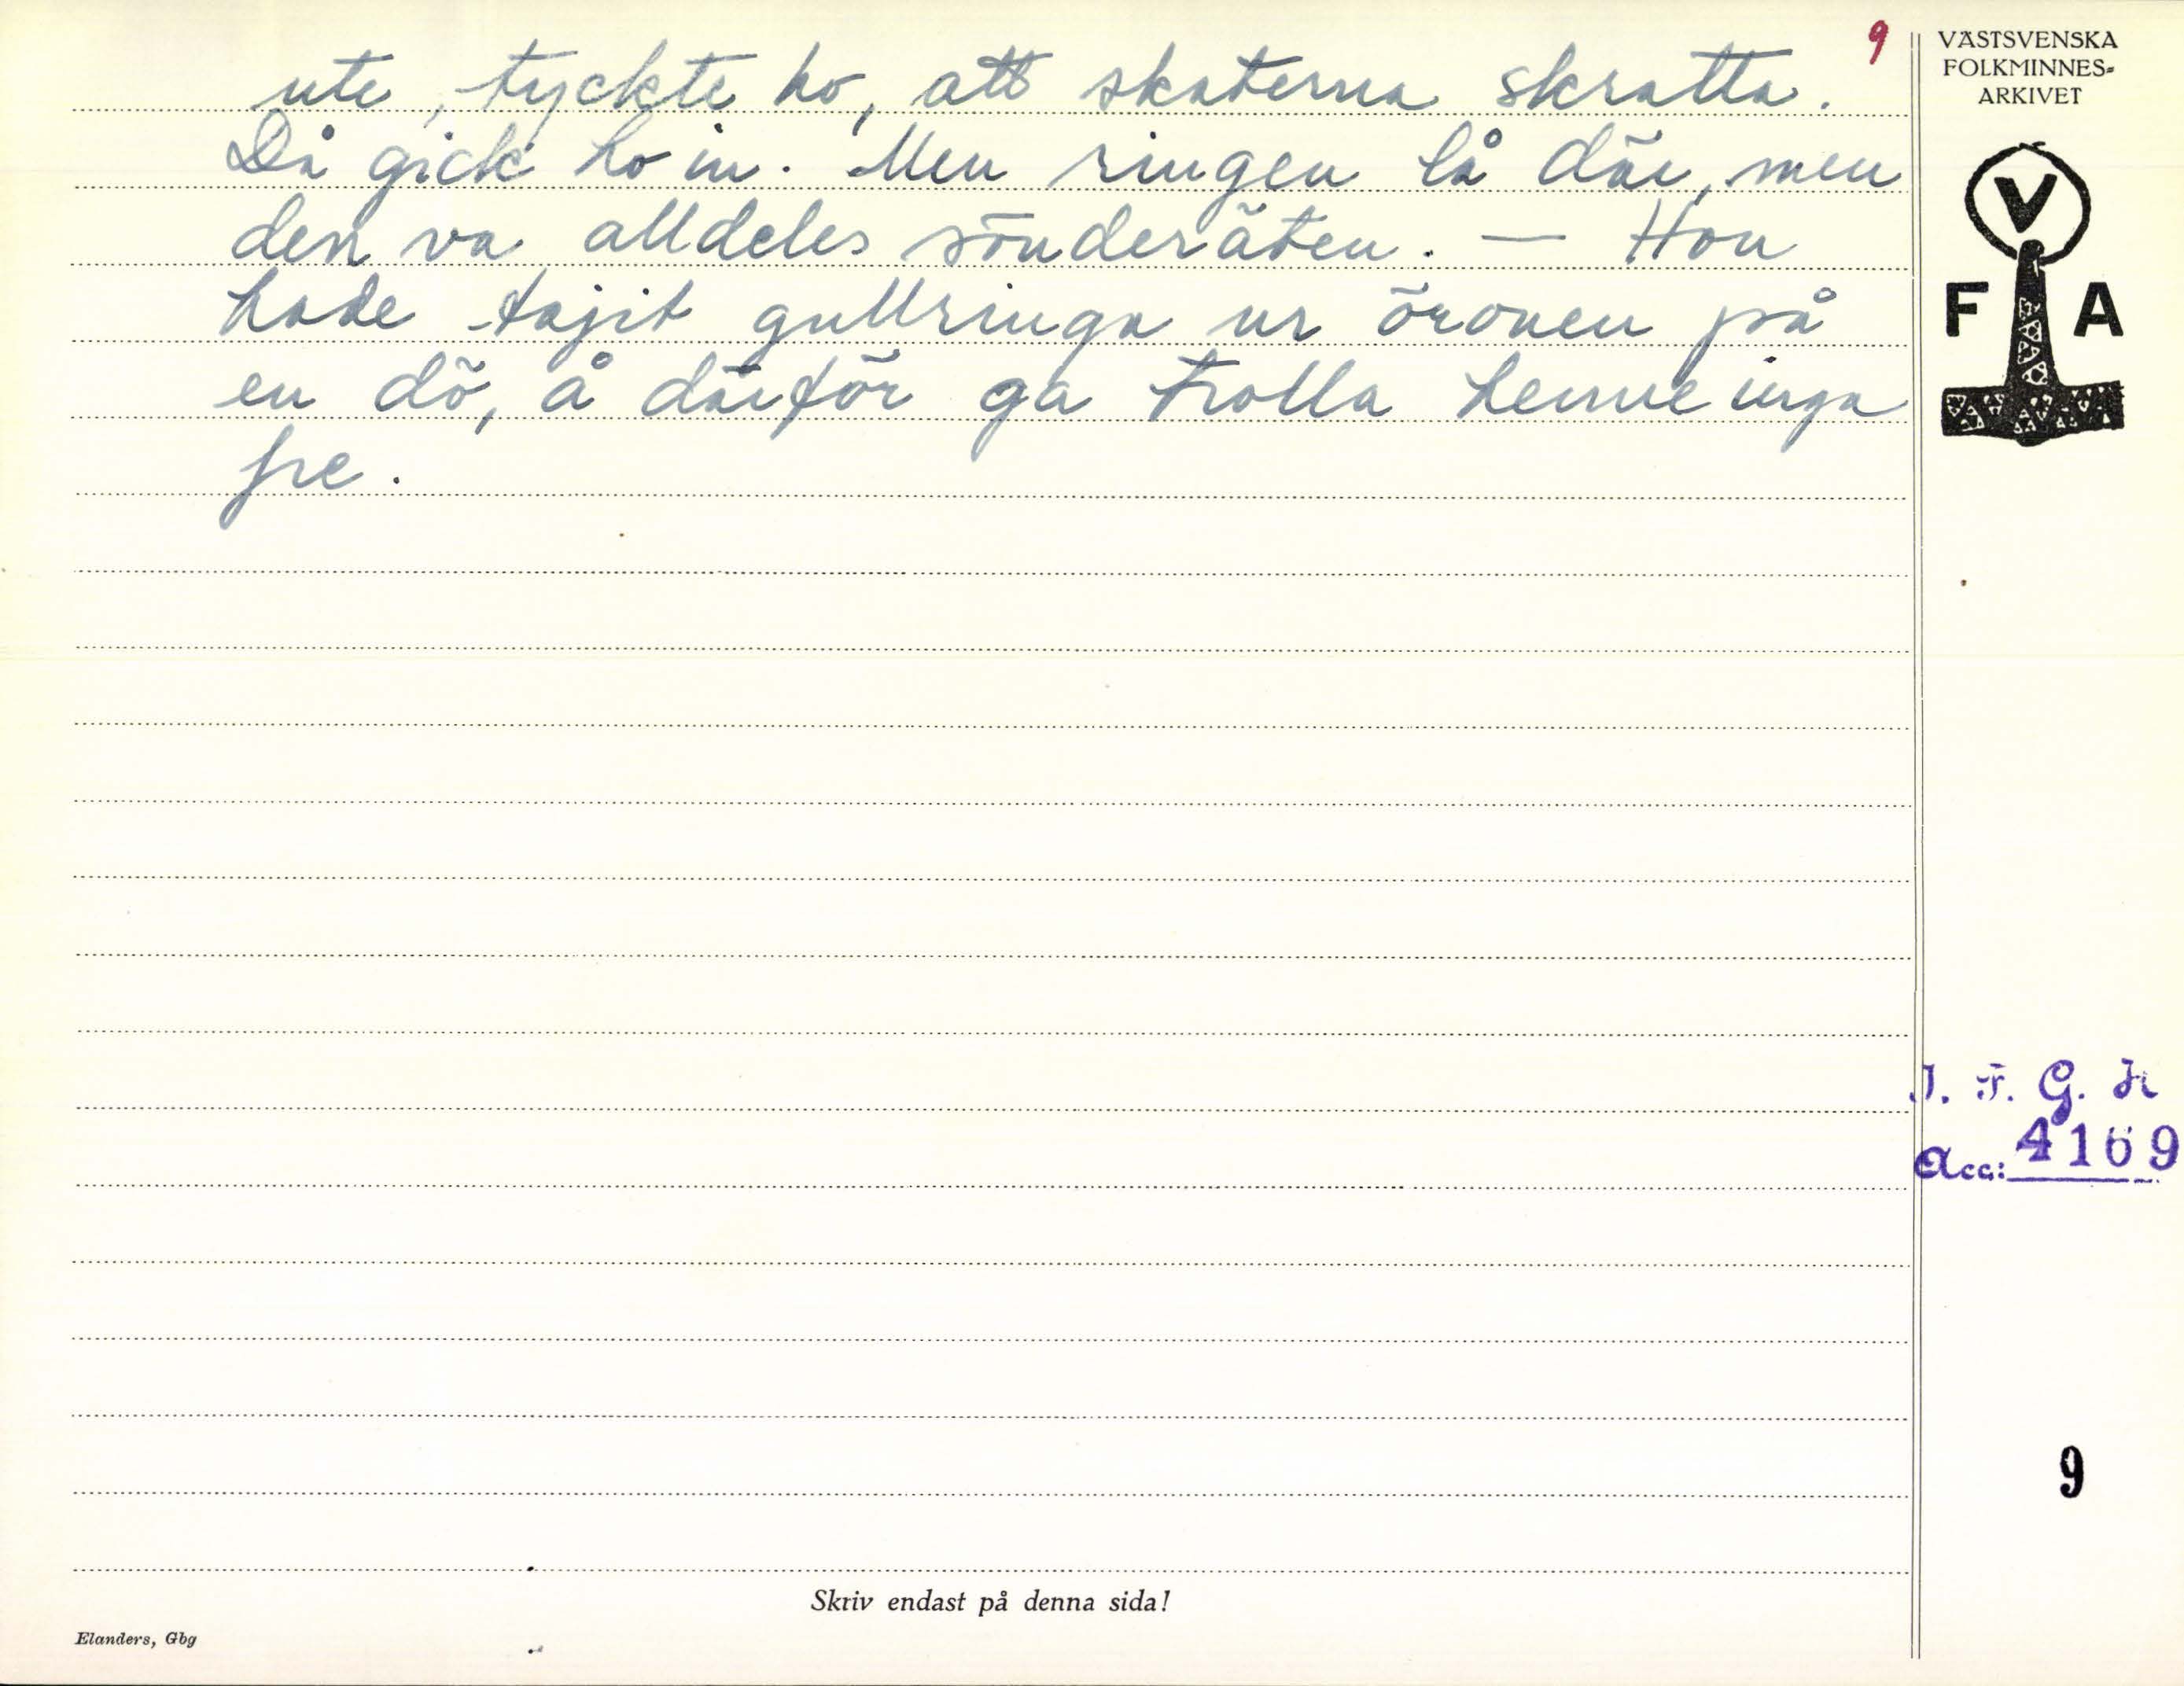 9
ute, tyckte ho, att skaterna skratta.
Då gick ho in. Men ringen lå där, men
den va alldeles sönderäten. — Hon
hade tajit gullringa ur öronen på
en dö, å därför ga trolla henne inga
fre.
VÄSTSVENSKA
FOLKMINNES-
ARKIVET
V
F A
I. F. G. H
Acc: 4169
9
Skriv endast på denna sida!
Elanders, Gbg